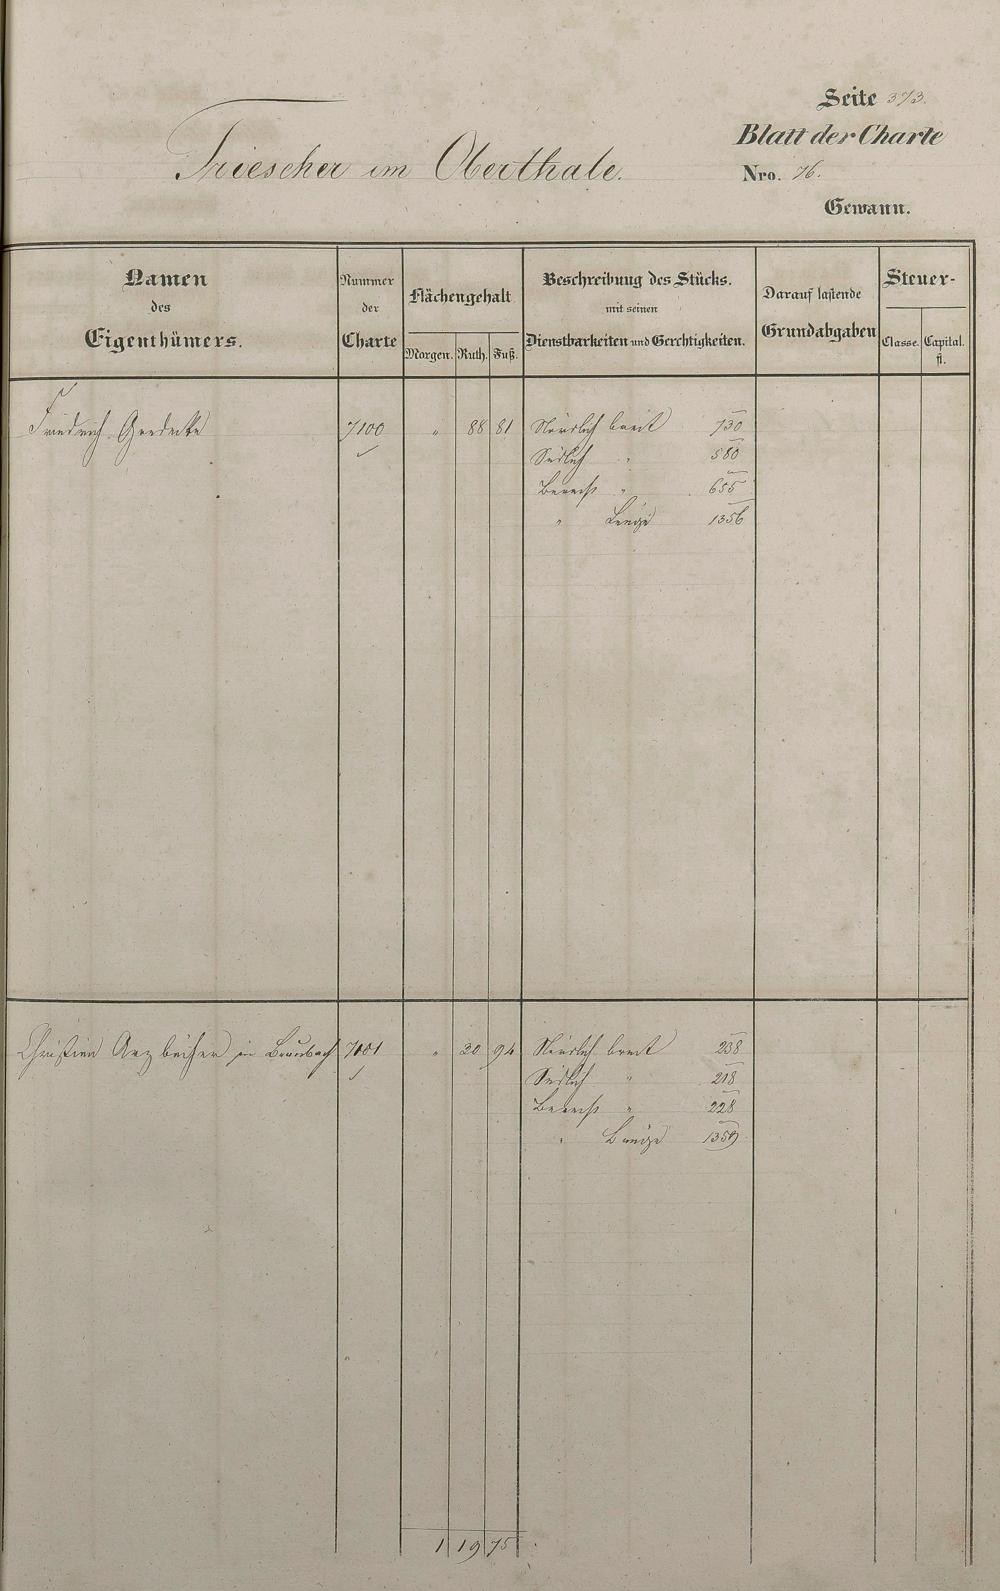 Seite 373.
Blatt der Charte
Triescher im Oberthale.
Nro. 76.
Gewann.
Namen
des
Eigenthümers.
Nummer
der
Charte
Flächengehalt
Morgen. Ruth. Fuß.
Beschreibung des Stücks.
mit seinen
Dienstbarkeiten und Gerechtigkeiten.
Darauf lastende
Grundabgaben
Steuer-
Classe. Capital.
fl.
Friedrich 7100 " 88 81 Nördlich breit 730
Südlich " 580
Berech " 655
" Länge 1356
Christian in Braubach 7101 " 30 94 Nördlich breit 238
Südlich " 218
Berech " 228
" Länge 1359
1 19 75